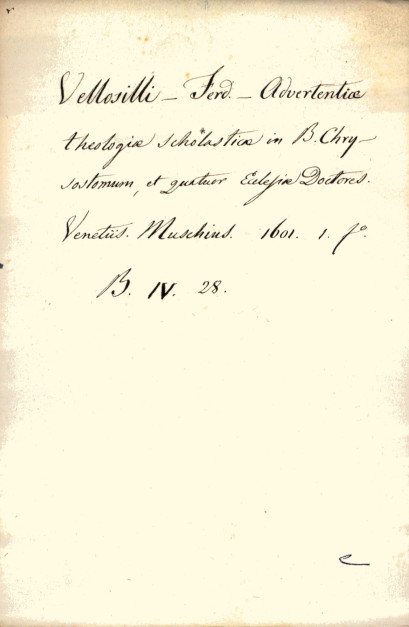 Vellosilli - Ferd. - Advertentiæ
theologiæ scholasticæ in B. Chry-
sostomum, et quatuor Eclesiæ Doctores.
Venetiis. Muschius. 1601. 1. fo.
B. IV. 28.